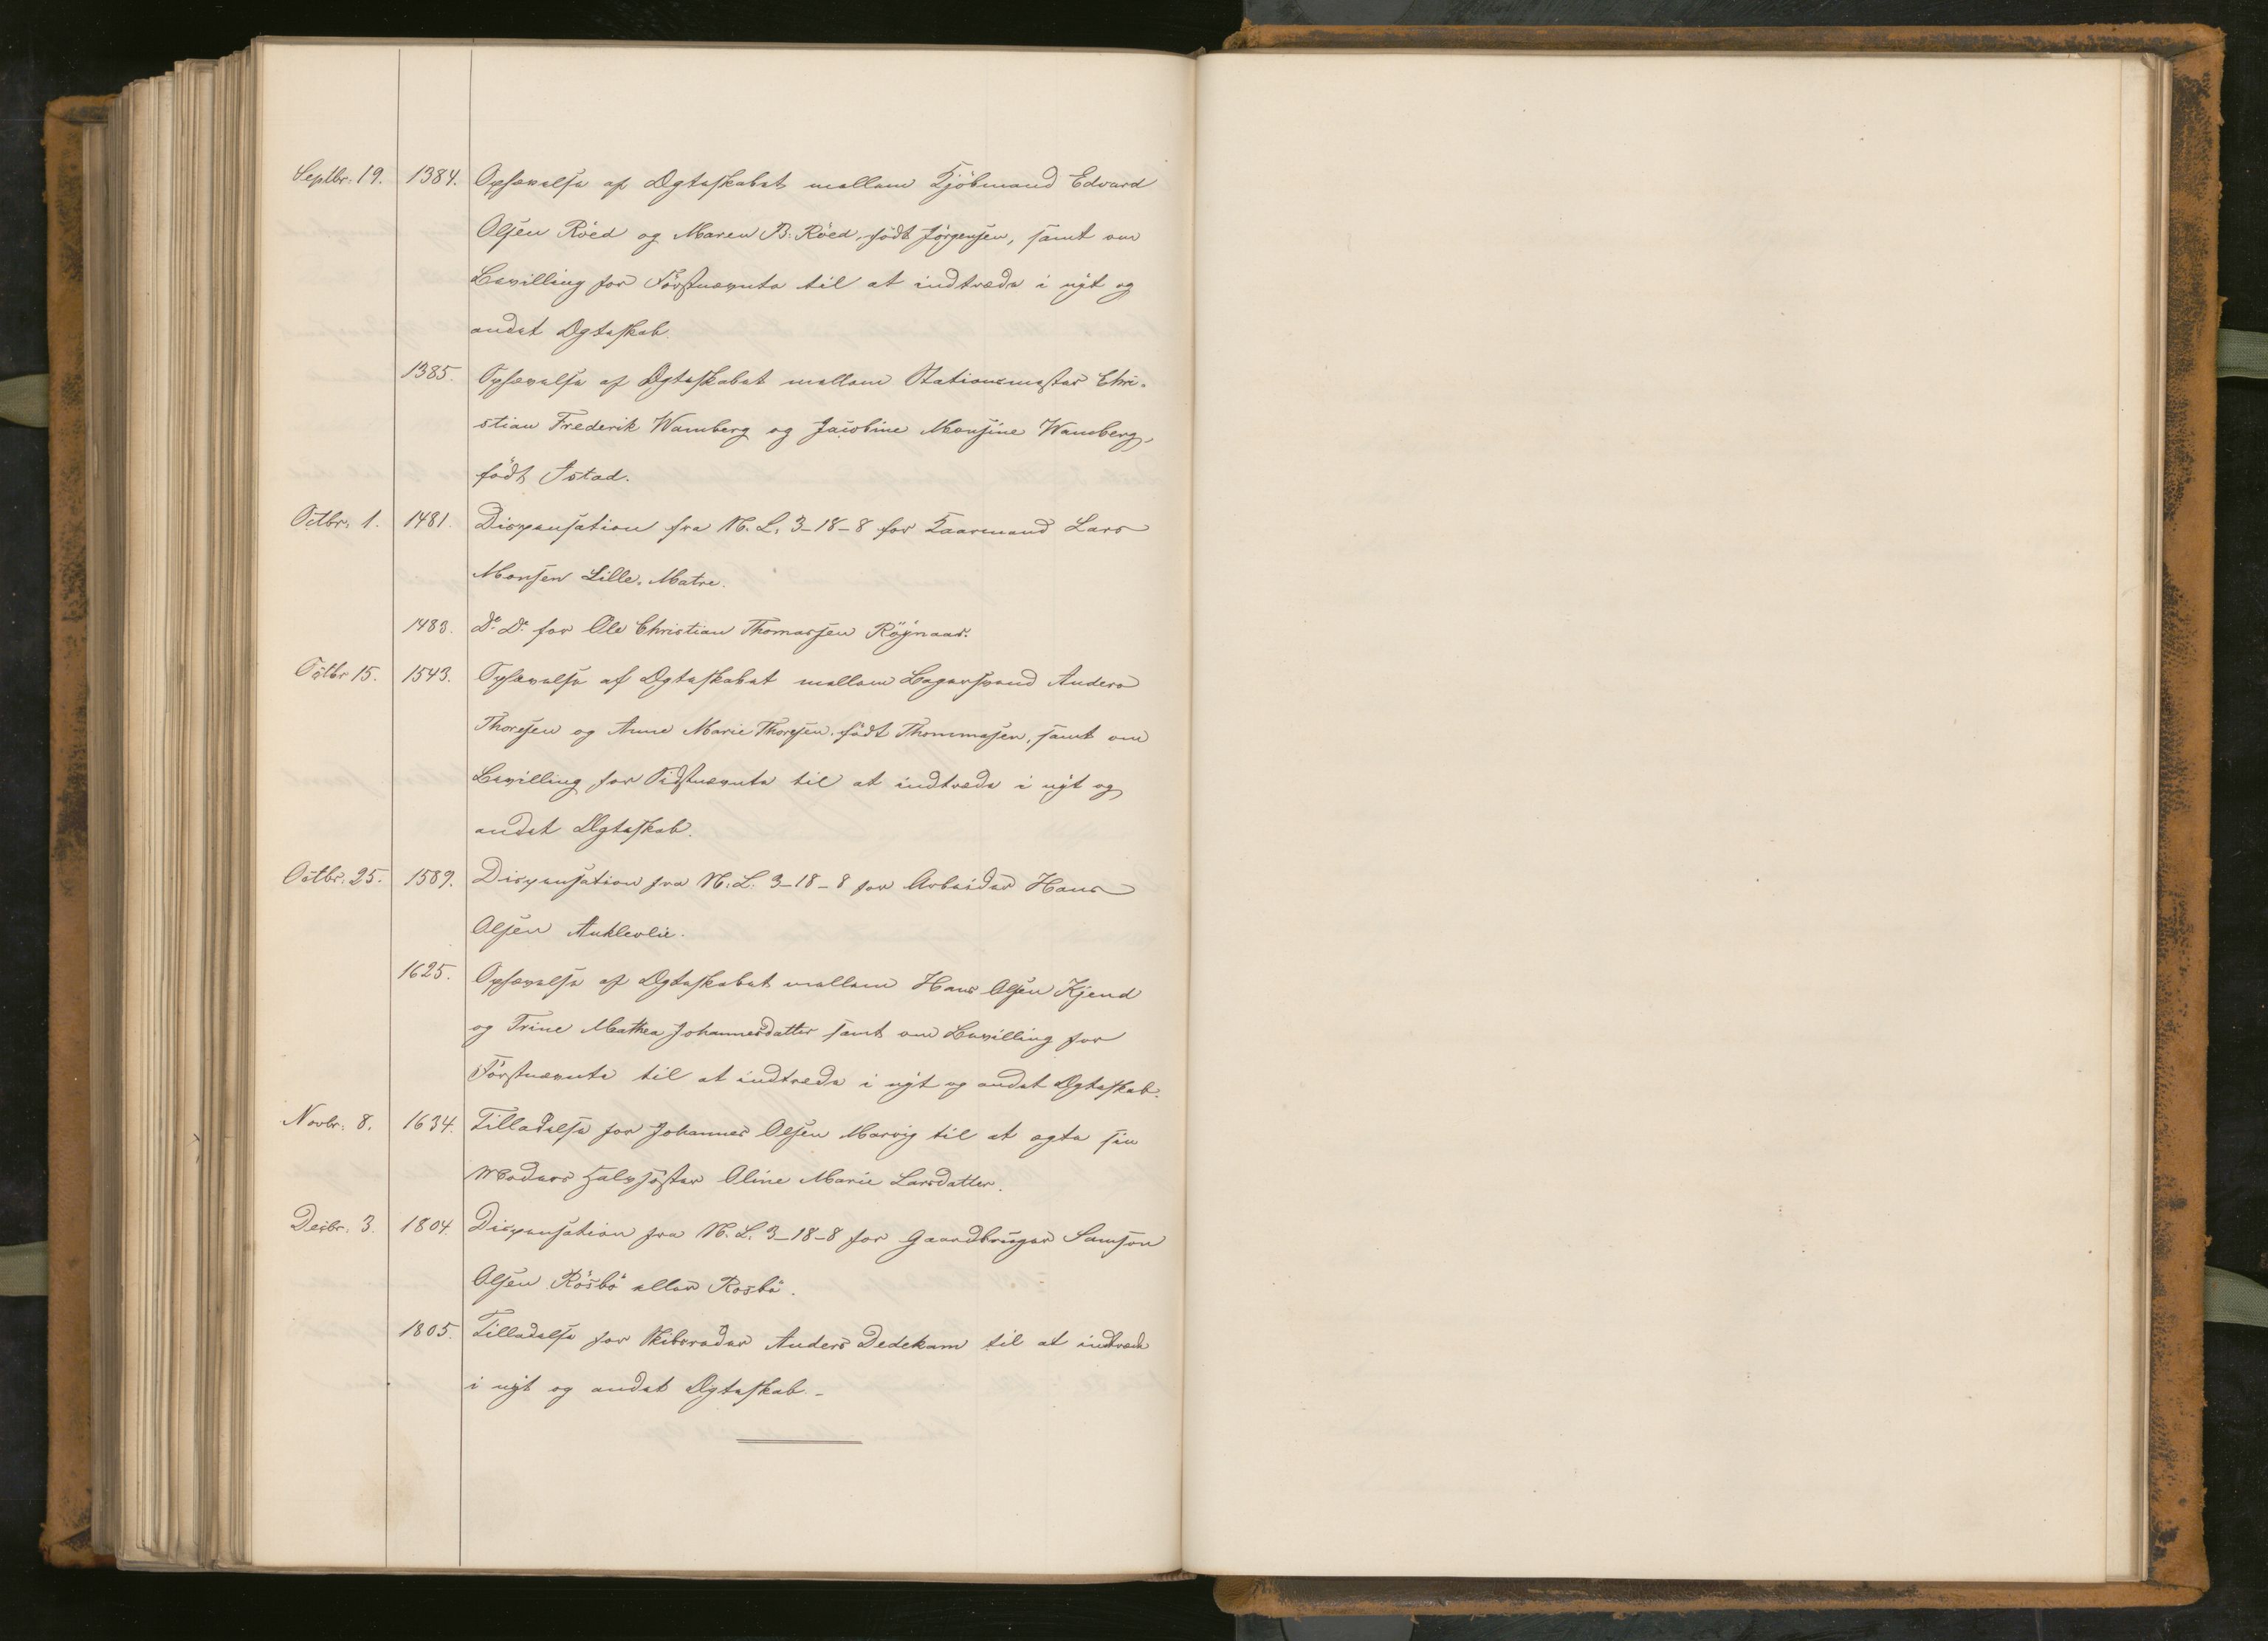 Septbr. 19. 1384. Ophævelse af Ægteskabet mellem Kjöbmand Edvard
Olsen Röed og Maren B. Röed, födt Jörgensen, samt om
Bevilling for Förstnævnte til at indtræde i nyt og
andet Ægteskab.
1385. Ophævelse af Ægteskabet mellem Stationsmester Chri-
stian Frederik Wamberg og Jacobine Monsine Wamberg,
födt Istad.
Octbr. 1. 1481. Dispensation fra N. L. 3-18-8 for Kaarmand Lars
Monsen Lille-Matre.
1483. Do. Do. for Ole Christian Thomassen Röynaas.
Octbr 15. 1543. Ophævelse af Ægteskabet mellem Bagersvend Anders
Thoresen og Anne Marie Thoresen, födt Thommesen, samt om
Bevilling for Sidstnævnte til at indtræde i nyt og
andet Ægteskab.
Octbr. 25. 1589. Dispensation fra N. L. 3-18-8 for Arbeider Hans
Olsen Auklevlie.
1625. Ophævelse af Ægteskabet mellem Hans Olsen Kjend
og Trine Mathea Johannesdatter samt om Bevilling for
Förstnævnte til at indtræde i nyt og andet Ægteskab.
Novbr. 8. 1634. Tilladelse for Johannes Olsen Marvig til at ægte sin
Moders Halvsöster Oline Marie Larsdatter.
Decbr. 3. 1804. Dispensation fra N. L. 3-18-8 for Gaardbruger Samson
Olsen Rösbö eller Rosbö.
1805. Tilladelse for Skibsreder Anders Dedekam til at indtræde
i nyt og andet Ægteskab.-